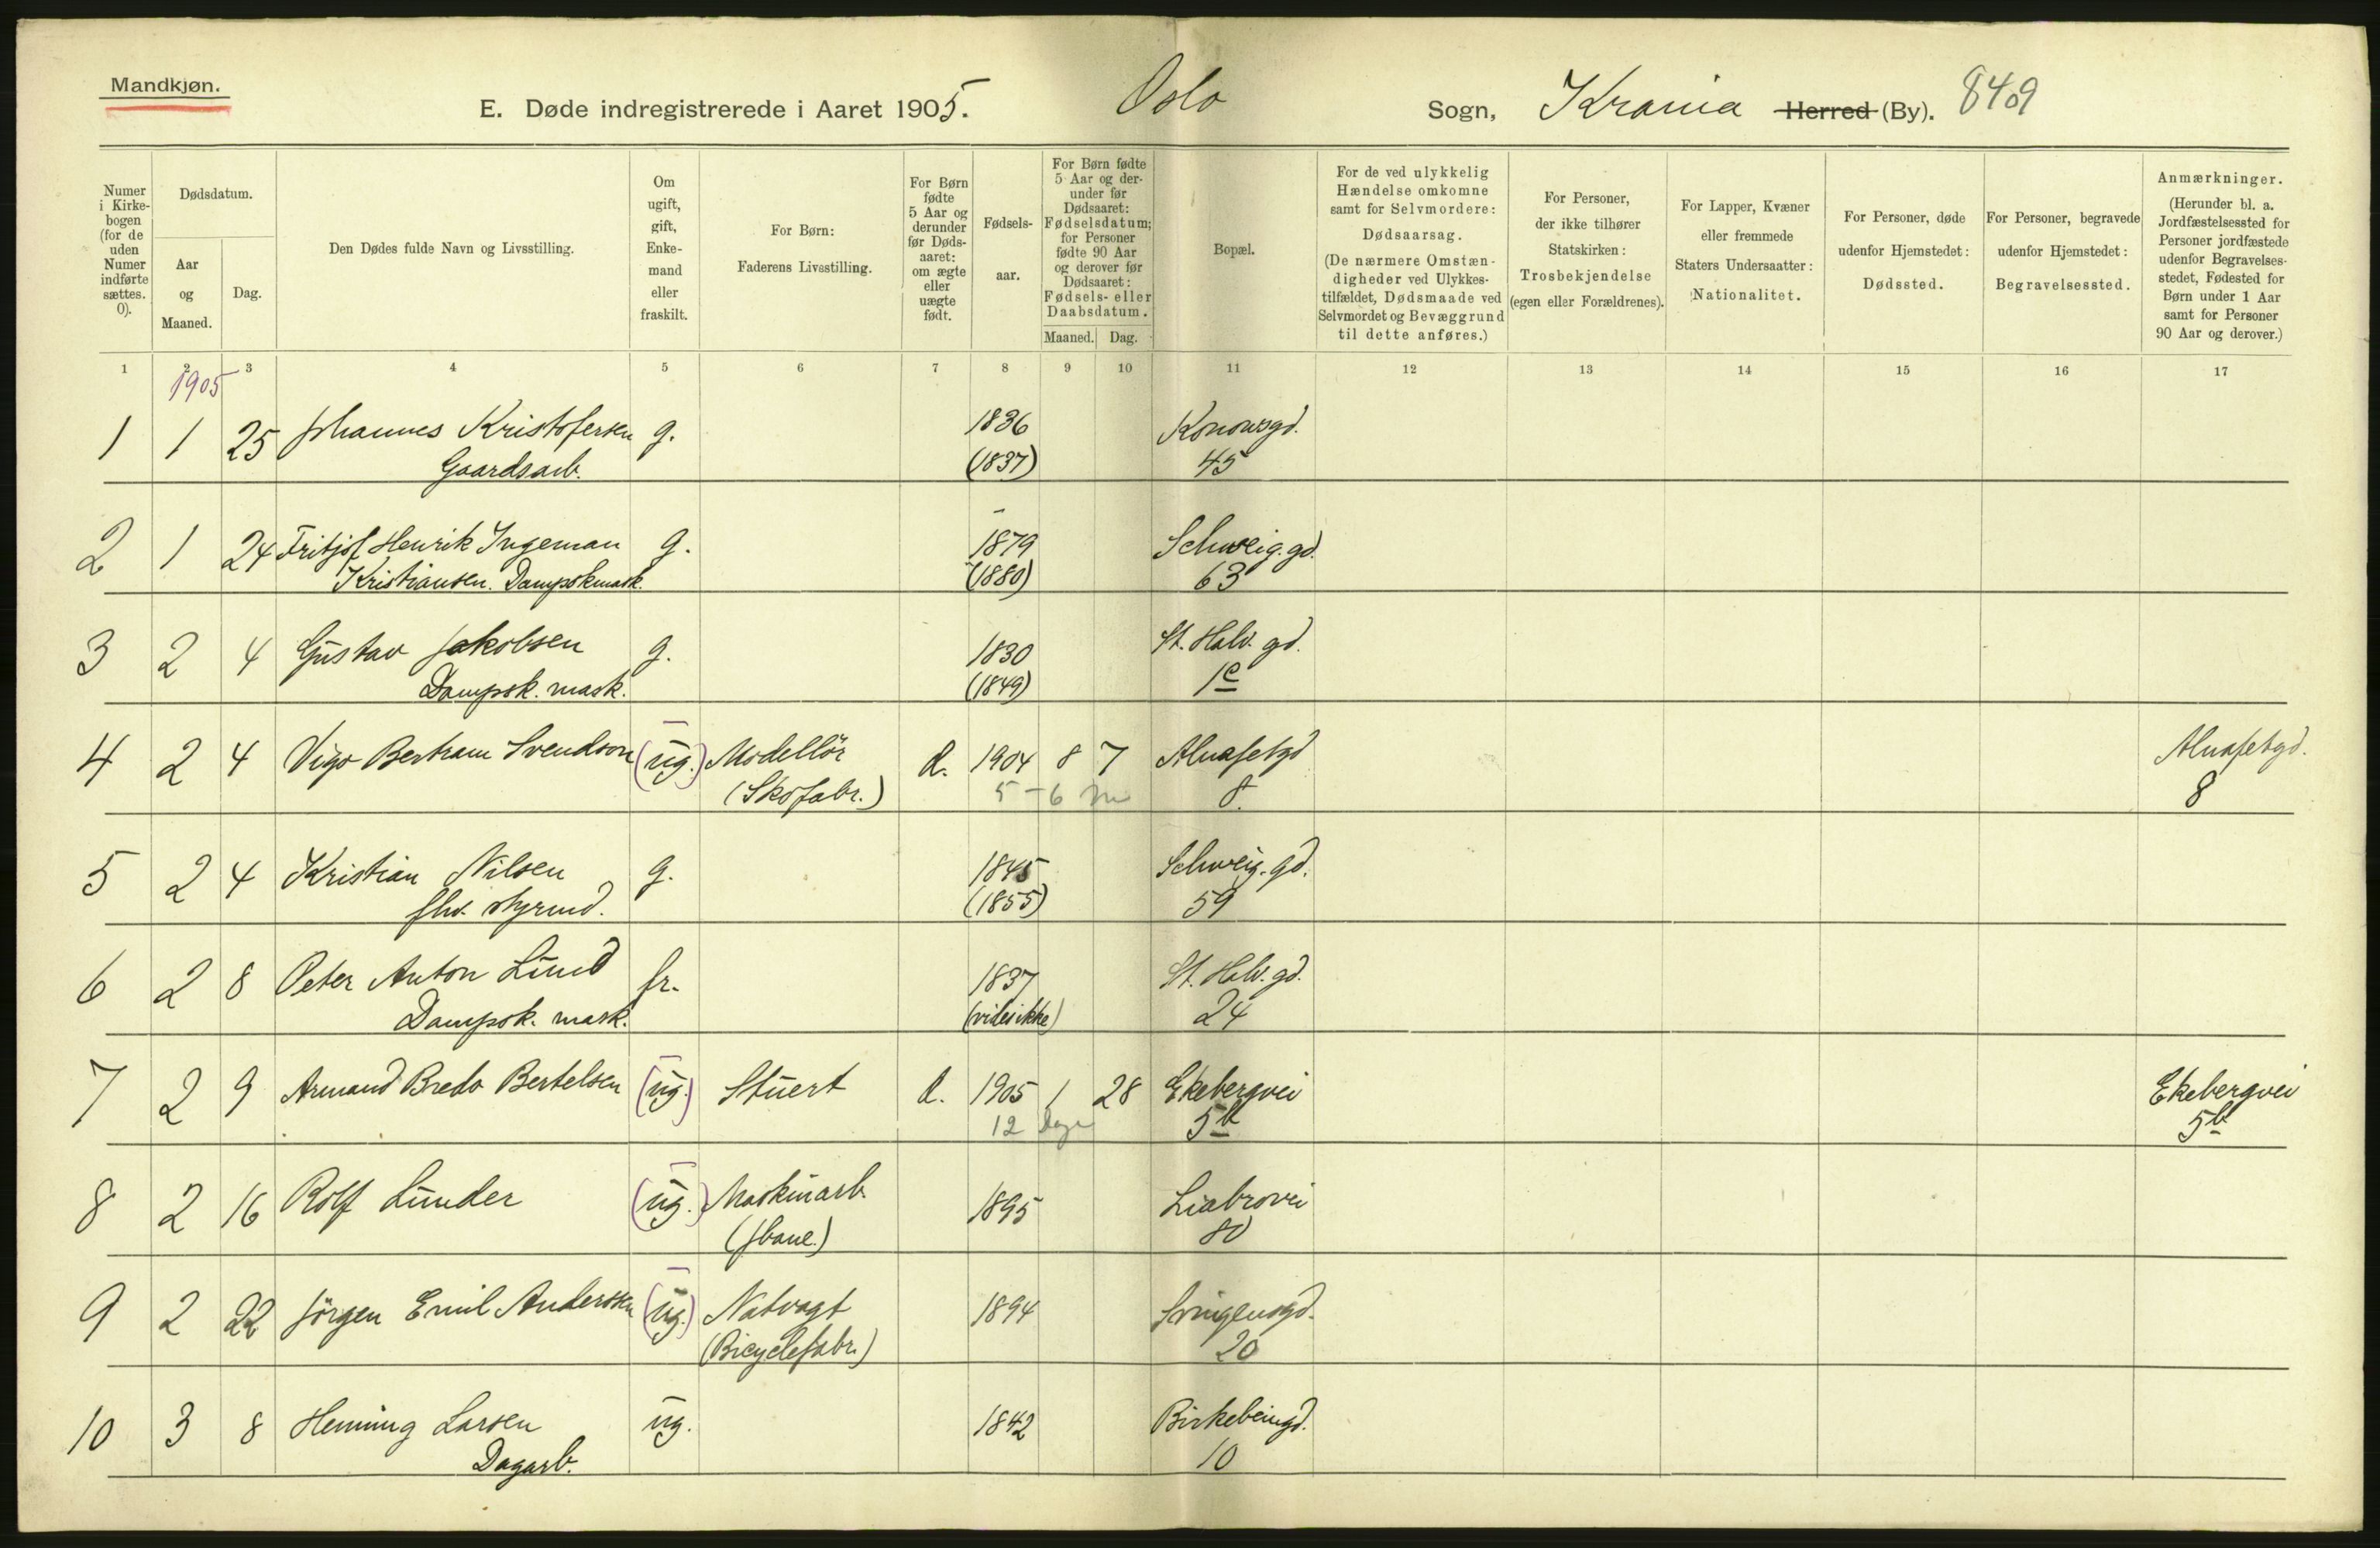 Mandkjøn.
E. Døde indregistrerede i Aaret 1905. Oslo Sogn, Krania Herred (By). 8409
Numer i Kirkebogen (for de uden Numer indførte sættes. 0).
Dødsdatum.
Aar og Maaned.
Dag.
Den Dødes fulde Navn og Livsstilling.
Om ugift, gift, Enkemand eller fraskilt.
For Børn: Faderens Livsstilling.
For Børn fødte 5 Aar og derunder før Dødsaaret: om ægte eller uægte født.
Fødselsaar.
For Børn fødte 5 Aar og derunder før Dødsaaret: Fødselsdatum; for Personer fødte 90 Aar og derover før Dødsaaret: Fødsels- eller Daabsdatum.
Maaned. Dag.
Bopæl.
For de ved ulykkelig Hændelse omkomne samt for Selvmordere: Dødsaarsag. (De nærmere Omstændigheder ved Ulykkestilfældet, Dødsmaade ved Selvmordet og Bevæggrund til dette anføres.)
For Personer, der ikke tilhører Statskirken: Trosbekjendelse (egen eller Forældrenes).
For Lapper, Kvæner eller fremmede Staters Undersaatter: Nationalitet.
For Personer, døde udenfor Hjemstedet: Dødssted.
For Personer, begravede udenfor Hjemstedet: Begravelsessted.
Anmærkninger. (Herunder bl. a. Jordfæstelsessted for Personer jordfæstede udenfor Begravelsesstedet, Fødested for Børn under 1 Aar samt for Personer 90 Aar og derover.)
1 2 3 4 5 6 7 8 9 10 11 12 13 14 15 16 17
1905
1 1 25 Johannes Kristofersen g. 1836 Konowsgd.
Gaardsarb. (1837) 45
2 1 24 Fritjof Henrik Ingeman g. 1879 Schweig.gd.
Kristiansen. Dampskmask. (1880) 63
3 2 4 Gustav Jakobsen g. 1830 St. Halv. gd.
Dampsk. mask. (1849) 1c
4 2 4 Vigo Bertram Svendson (ug.) Modellör d. 1904 8 7 Alnafetgd Alnafetgd.
(Skofabr.) 5-6 m 8. 8
5 2 4 Kristian Nilsen g. 1845 Schweig. gd.
fhv. styrmd. (1855) 59
6 2 8 Peter Anton Lund fr. 1837 St. Halv. gd.
Dampsk. mask. (vides ikke) 24
7 2 9 Armand Bredo Bertelsen (ug.) Stuert d. 1905 1 28 Ekebergvei Ekebergvei
12 Dage 5b 5b
8 2 16 Rolf Lunder (ug.) Maskinarb. 1895 Liabrovei
(Jbane.) 80
9 2 22 Jörgen Emil Anderssen (ug.) Natvagt 1894 Svingensgd.
(Bicyclefabr.) 20
10 3 8 Henning Larsen ug. 1842 Birkebeingd.
Dagarb. 10